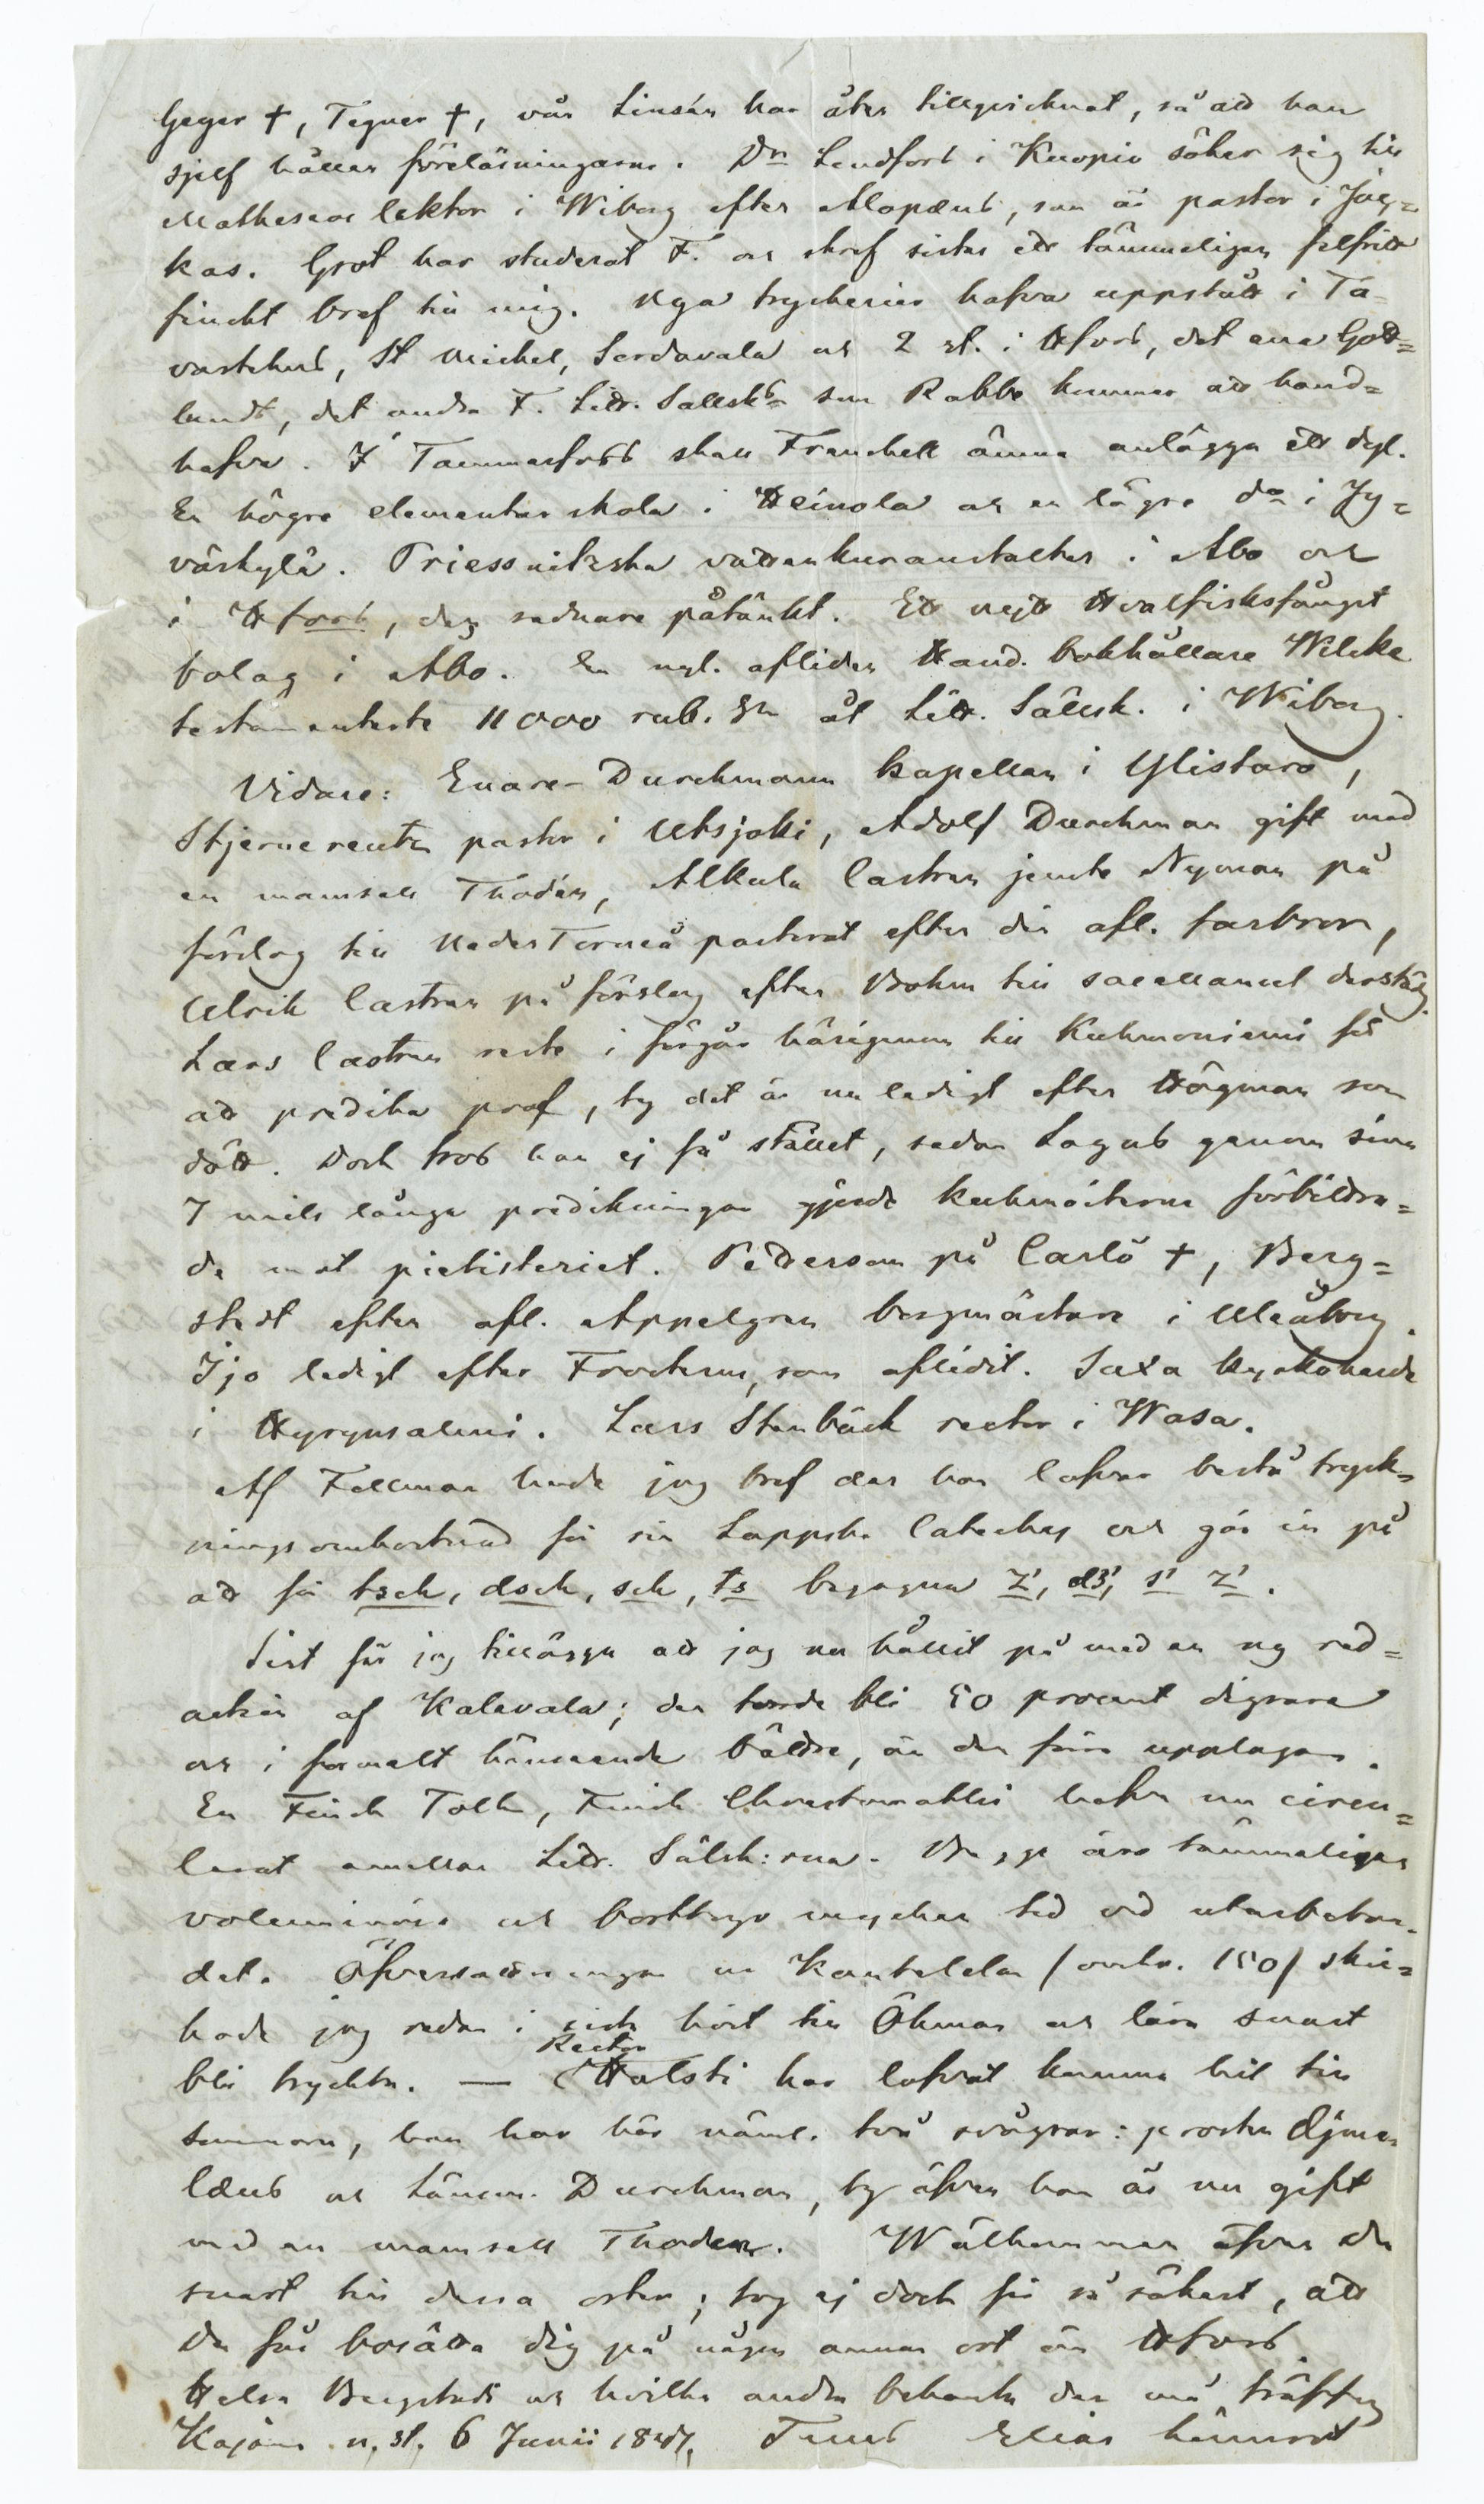 Geijer †, Tegner †, vår Linsén har åter tillfrisknat, så att han
sjelf håller föreläsningarne. Dr Lindfors i Kuopio söker sig till
Matheseos lektor i Wiborg efter Alopæus, som är pastor i Jäg=
kas. Grot har studerat F. och skref sistes ett tämmeligen felfritt
finskt bref till mig. Nya tryckerier hafva uppstått i Ta-
vastehus, St Michel, Serdavala och 2 st. i Hfors, det ena Gott=
lunds, det andra F. Litt. Sällsk:s som Rabbe kommer att hand=
hafva. I Tammerfors skall Frenckell ämna anlägga ett dyl.
En högre elementar skola i Heinola och en lägre do i Jy=
väskylä. Priessnitzska vattenkuranstalter i Åbo och
i Hfors, den sednare påtänkt. Ett nytt Hvalfisksfångst
bolag i Åbo. En nyl. afliden Hand. bokhållare Wilcke
testamenterte 11000 rub. Sr åt Litt. Sällsk. i Wiborg.
Vidare: Enare-Durchmann kapellan i Ylistaro,
Stjernecreutz pastor i Utsjoki, Adolf Durchman gift med
en mamsell Thodén, Alkula Castren jemte Nyman på
förslag till Neder Torneå pastorat efter din afl. farbror,
Ulrik Castren på förslag efter Bohm till sacellanut derstäd.
Lars Castren reste i förgår härigenom till Kuhmoniemi för
att predika prof, ty det är nu ledigt efter Högman som
dött. Dock tros han ej få stället, sedan Lagus genom sina
7 mils långa predikningar gjorde kuhmoiterna förbittra=
de mot pietisteriet. Pederson på Carlö †, Berg=
stedt efter afl. Appelgren borgmästare i Uleåborg.
Ijo ledigt efter Frosterus, som aflidit. Saxa kyrkoherde
i Hyrynsalmi. Lars Stenbäck rector i Wasa.
Af Fellman hade jag bref der han lofvar bestå tryck=
ningsomkostnad för sin Lappska Cateches och går in på
att för tsch, dsch, sch, ts begagna z', dz', s' z'.
Sist får jag tillägga att jag nu hållit på med en ny red=
action af Kalevala; den torde bli 50 procent digrare
och i formelt hänseende bättre, än den förra upplagan.
En Finsk Tolk, Finsk Chrestomathi hafva nu circu=
lerat emellan Litt. Sälsk:rna. Begge äro tämmeligen
voluminösa och borttogo mycken tid vid utarbetan-
det. Öfversättningar ur Kanteletar (omkr. 150) skic=
kade jag redan i sistl. höst till Öhman och lära snart
bli tryckta. — Rector Halsti har lofvat komma hit till
sommarn, han har här näml. två svågrar: prosten Ejme-
læus och Länsm. Durchman, ty äfven han är nu gift
med en mamsell Thoden. Wälkommen äfven du
snart till dessa orter; tag ej dock för så säkert, att
du får bosätta dig på någon annan ort än Hfors.
Helsa Bergstadi och hvilka andra bekanta der må träffas
Kajana n. st. 6 Junii 1847. Tuus Elias Lönnrot